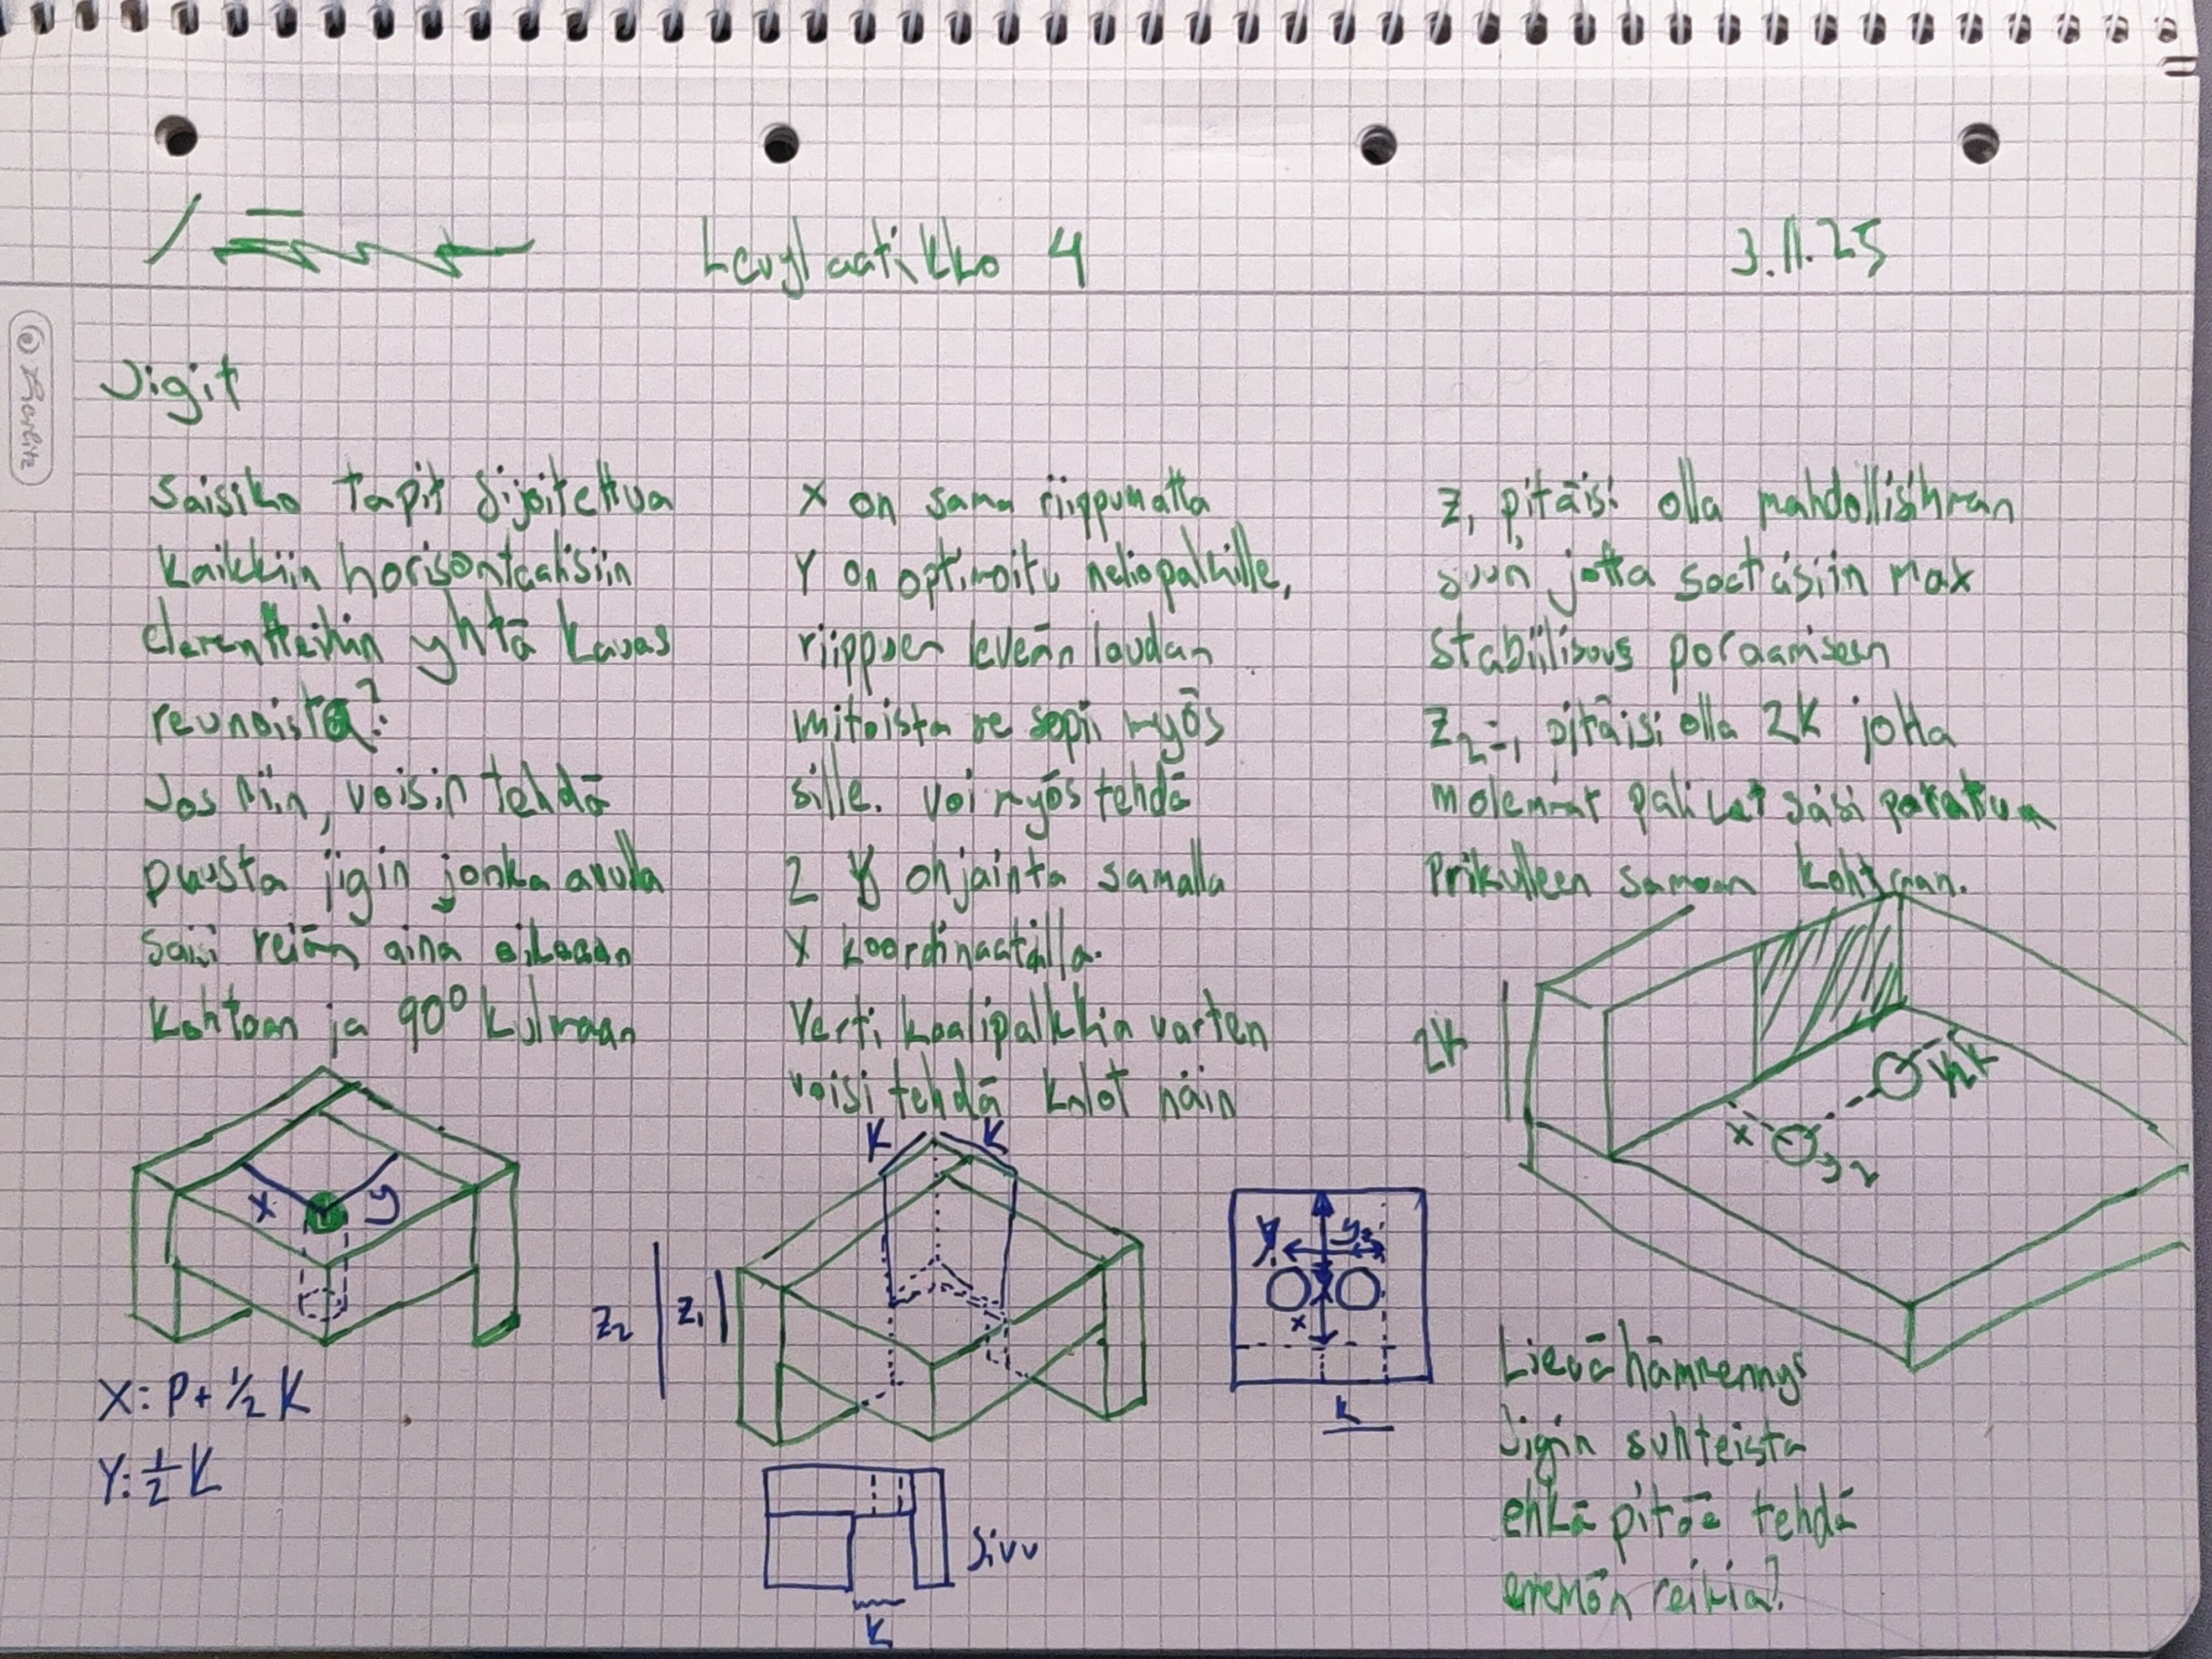 Levylaatikko 4
3.11.25
Herlitz
Jigit
Saisiko tapit sijoitettua
kaikkiin horisontaalisiin
elementteihin yhtä kauas
reunoista?
Jos niin, voisin tehdä
puusta jigin jonka avulla
saisi reiän aina oikeaan
kohtaan ja 90° kulmaan
x
y
X: P + 1/2 K
Y: 1/2 K
X on sama riippumatta
Y on optimoitu neliöpalkille,
riippuen leveän laudan
mitoista se sopii myös
sille. Voi myös tehdä
2 Y ohjainta samalla
X koordinaatilla.
Vertikaalipalkkia varten
voisi tehdä kolot näin
K
K
Z2
Z1
Sivu
K
y1
y2
x
K
Z1 pitäisi olla mahdollisimman
suuri, jotta saataisiin max
stabiilisuus poraamiseen
pitäisi olla 2K jotta
molemmat palikat saisi porattua
Prikulleen samaan kohtaan.
2K
1/2K
x
y2
Lievä hämmennys
Jigin suhteista
ehkä pitää tehdä
enemän reikiä?